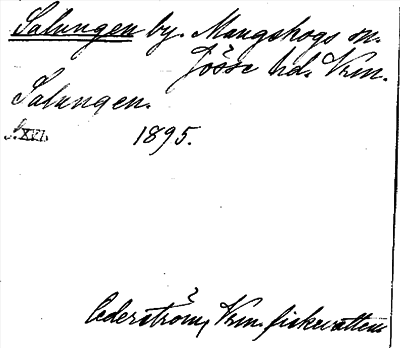 Salungen by. Mangskogs sn.
Jösse hd. Vrm.
Salungen.
S. XVI. 1895.
Cederström, Vrm. fiskevatten